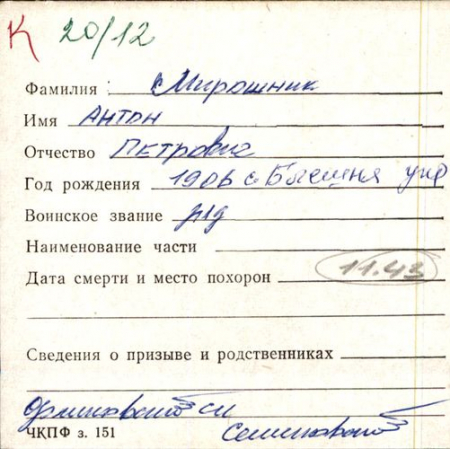 К 20/12
Фамилия Мирошник
Имя Антон
Отчество Петрович
Год рождения 1906 с
Воинское звание ряд
Наименование части
Дата смерти и место похорон 11.43
Сведения о призыве и родственниках
ЧКПФ з. 151